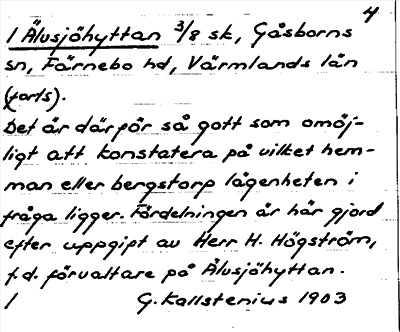 4
1 Älusjöhyttan 3/8 sk, Gåsborns
sn, Färnebo hd, Värmlands län
(forts).
Det är därför så gott som omöj-
ligt att konstatera på vilket hem-
man eller bergstorp lägenheten i
fråga ligger. Fördelningen är här gjord
efter uppgift av Herr H. Högström,
f.d. förvaltare på Älusjöhyttan.
/ G. Kallstenius 1903